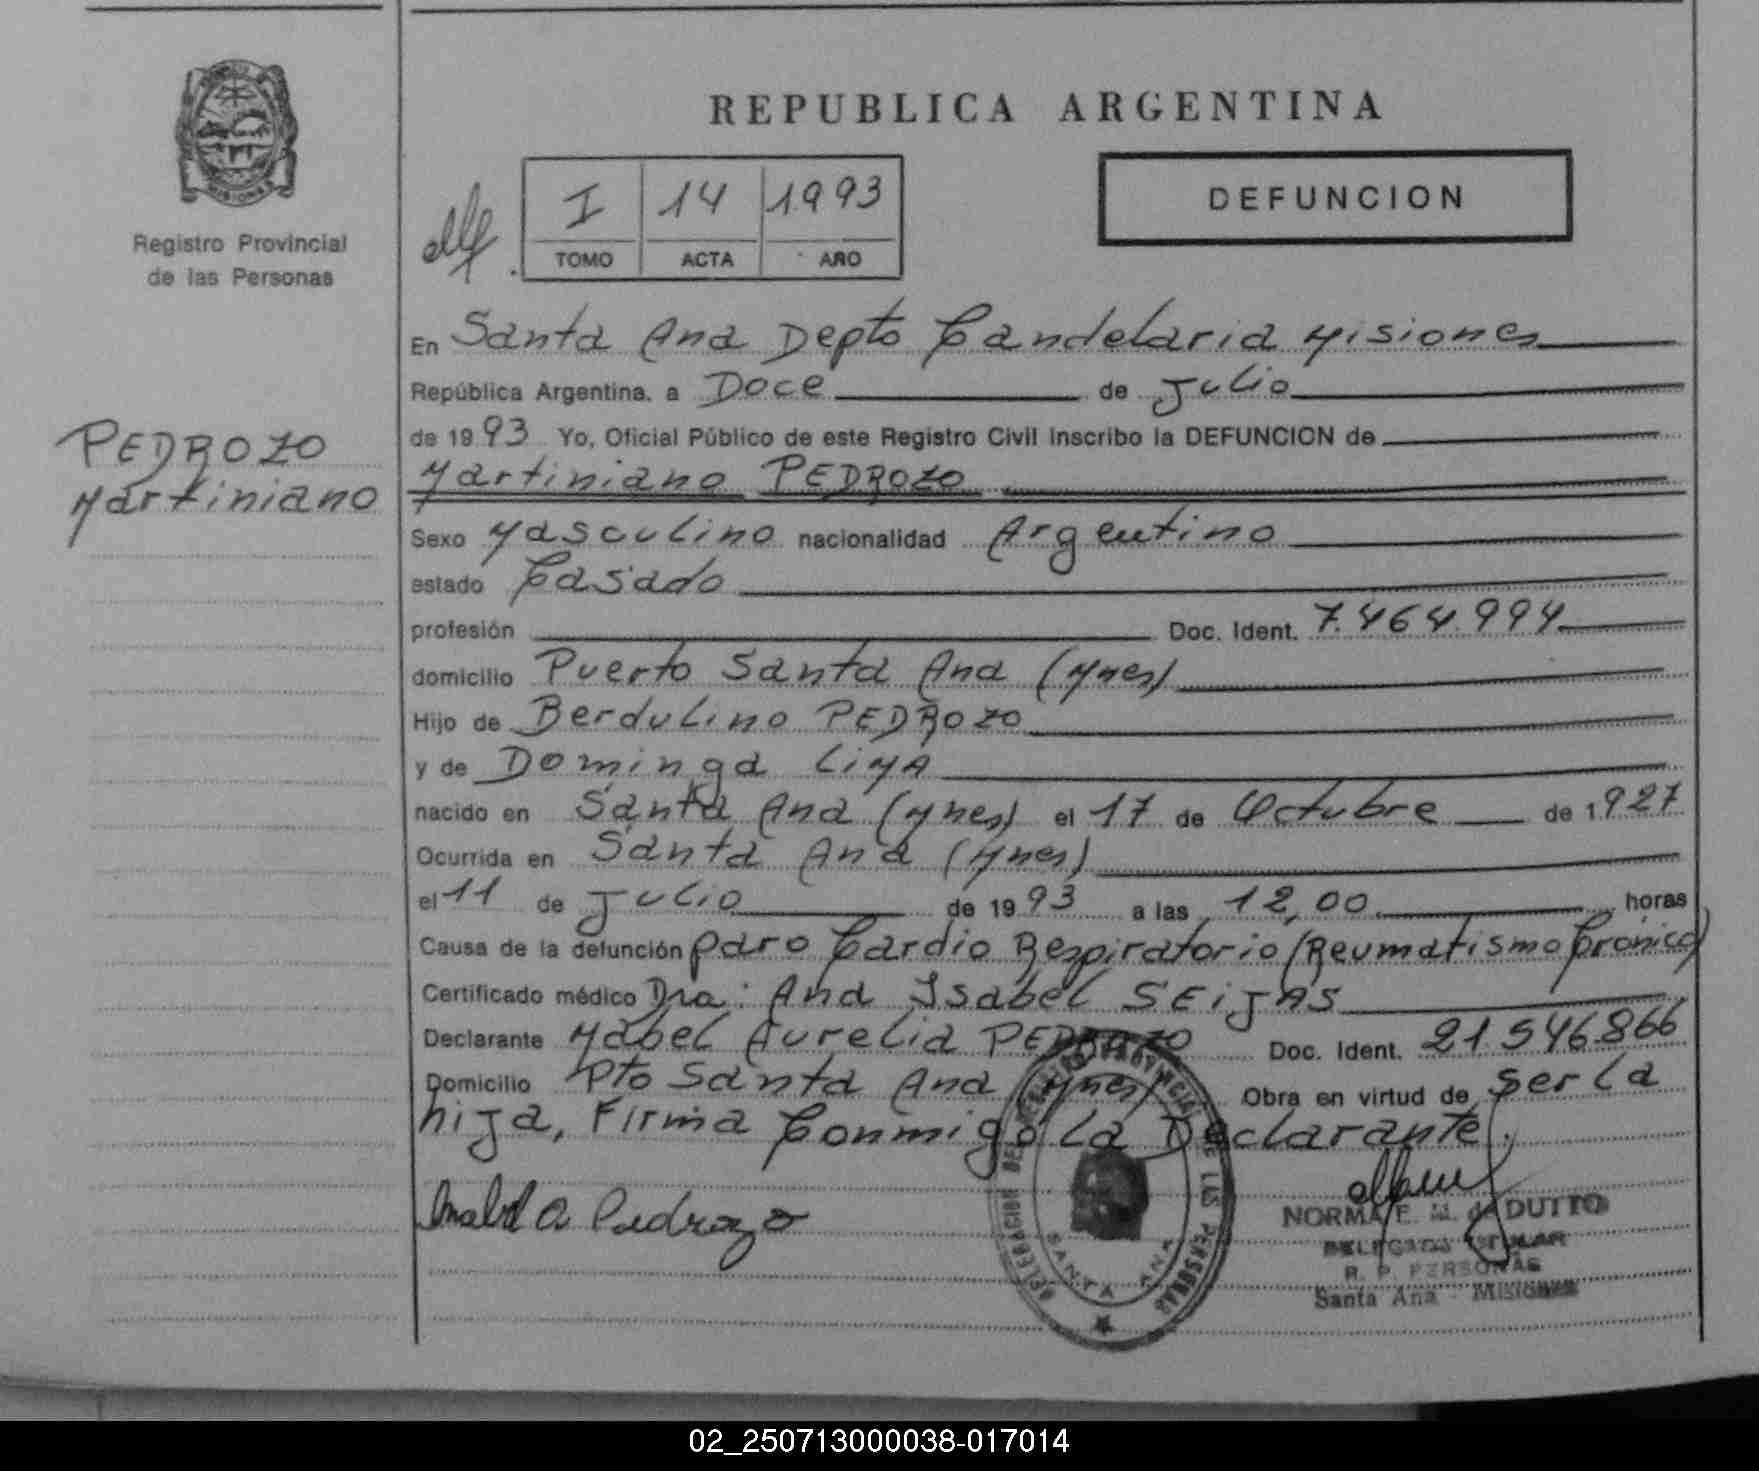 REPUBLICA ARGENTINA
MISIONES
Registro Provincial
de las Personas
I 14 1993
TOMO ACTA AÑO
DEFUNCION
PEDROZO
Martiniano
En Santa Ana Depto Candelaria Misiones
República Argentina, a Doce de Julio
de 1993 Yo, Oficial Público de este Registro Civil Inscribo la DEFUNCION de
Martiniano PEDROZO
Sexo Masculino nacionalidad Argentino
estado Casado
profesión Doc. Ident. 7.464.994
domicilio Puerto Santa Ana (Mnes)
Hijo de Berdulino PEDROZO
y de Dominga LiMA
nacido en Santa Ana (Mnes) el 17 de Octubre de 1927
Ocurrida en Santa Ana (Mnes)
el 11 de Julio de 1993 a las 12,00 horas
Causa de la defunción paro Cardio Respiratorio (Reumatismo Cronico)
Certificado médico Dra: Ana Isabel SEiJAS
Declarante Mabel Aurelia PEDROZO Doc. Ident. 21.546.866
Domicilio Pto Santa Ana (Mnes) Obra en virtud de ser la
hija, Firma Conmigo La Declarante.
Mabel A Pedrozo
DELEGACION DEL REGISTRO PROVINCIAL DE LAS PERSONAS
SANTA ANA
NORMA E. M. de DUTTO
DELEGADA TITULAR
R. P. PERSONAS
Santa Ana - Misiones
02_250713000038-017014